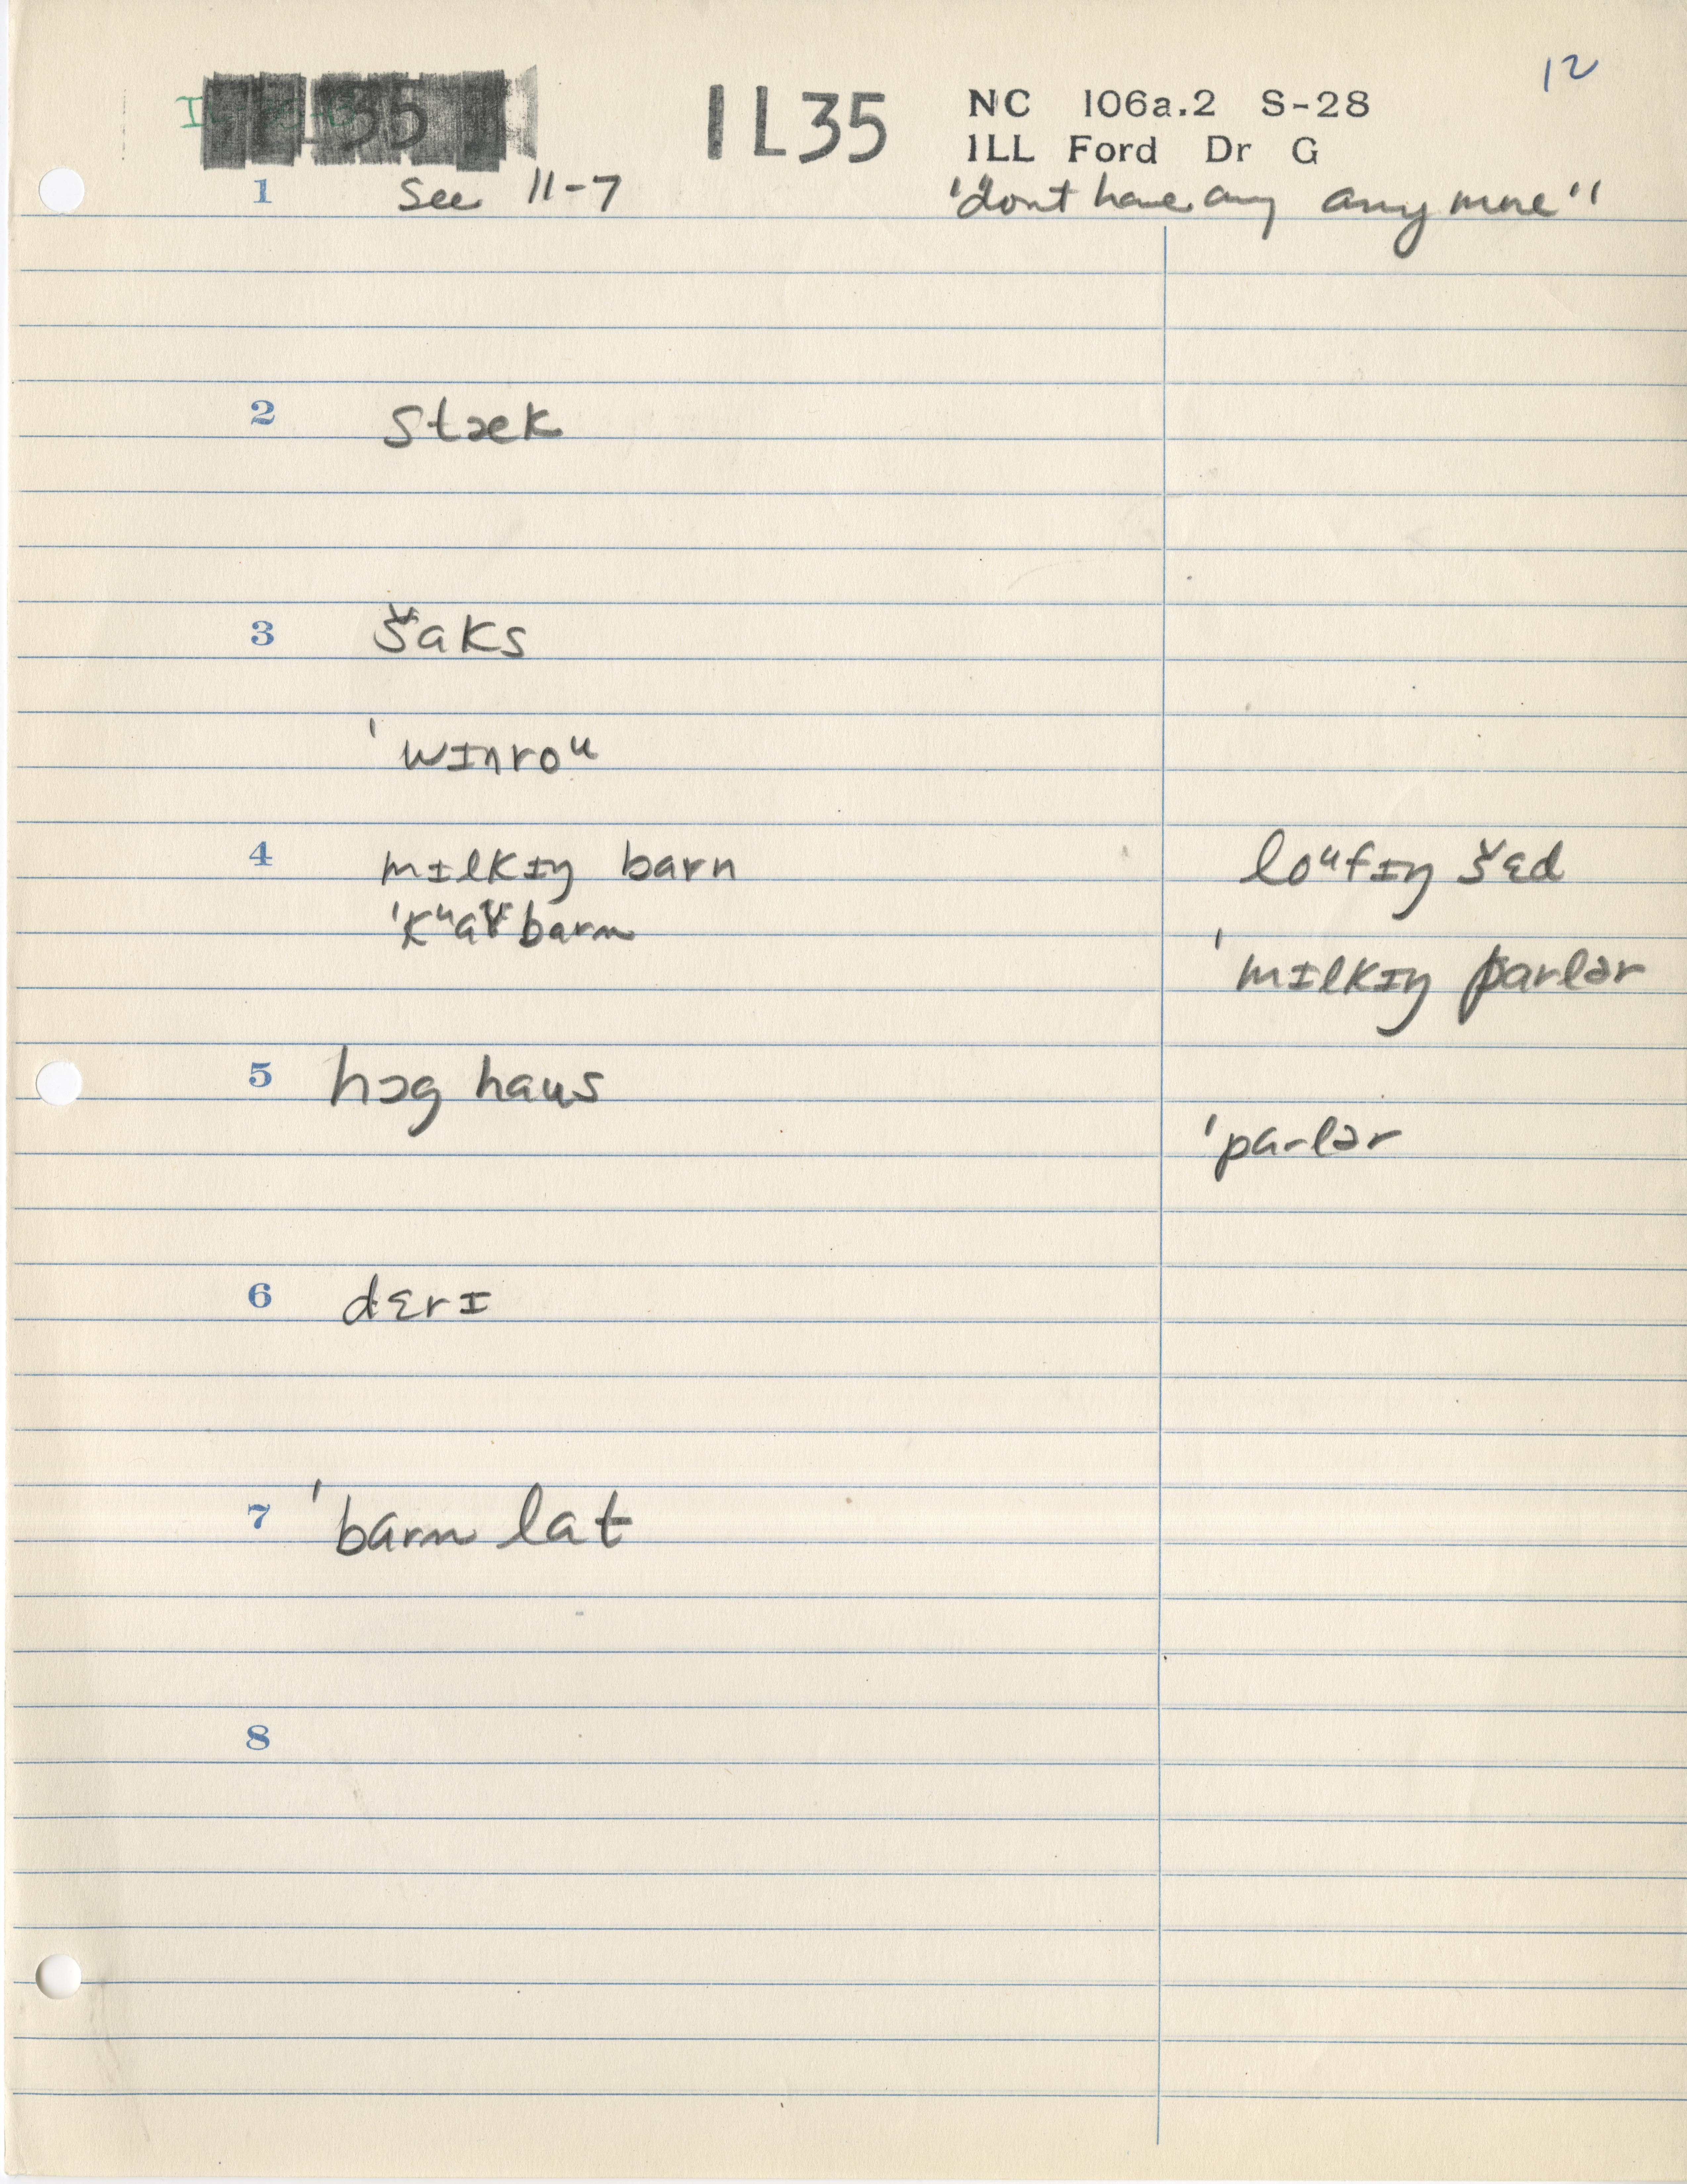 12
IL35
NC 106a.2 S-28
ILL Ford Dr G
1 See 11-7 "dont have any any more"
2 stæk
3 šaks
ˈwɪnroᵘ
4 mɪlkɪŋ barn loᵘfɪŋ šɛd
barn
ˈmɪlkɪŋ parlər
5 hɔg haus
ˈparlər
6 dɛrɪ
7 ˈbarn lat
8